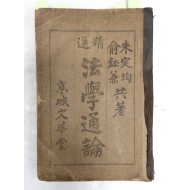 朱定均
俞鈺兼 共著
精選
法學通論
京城文華堂